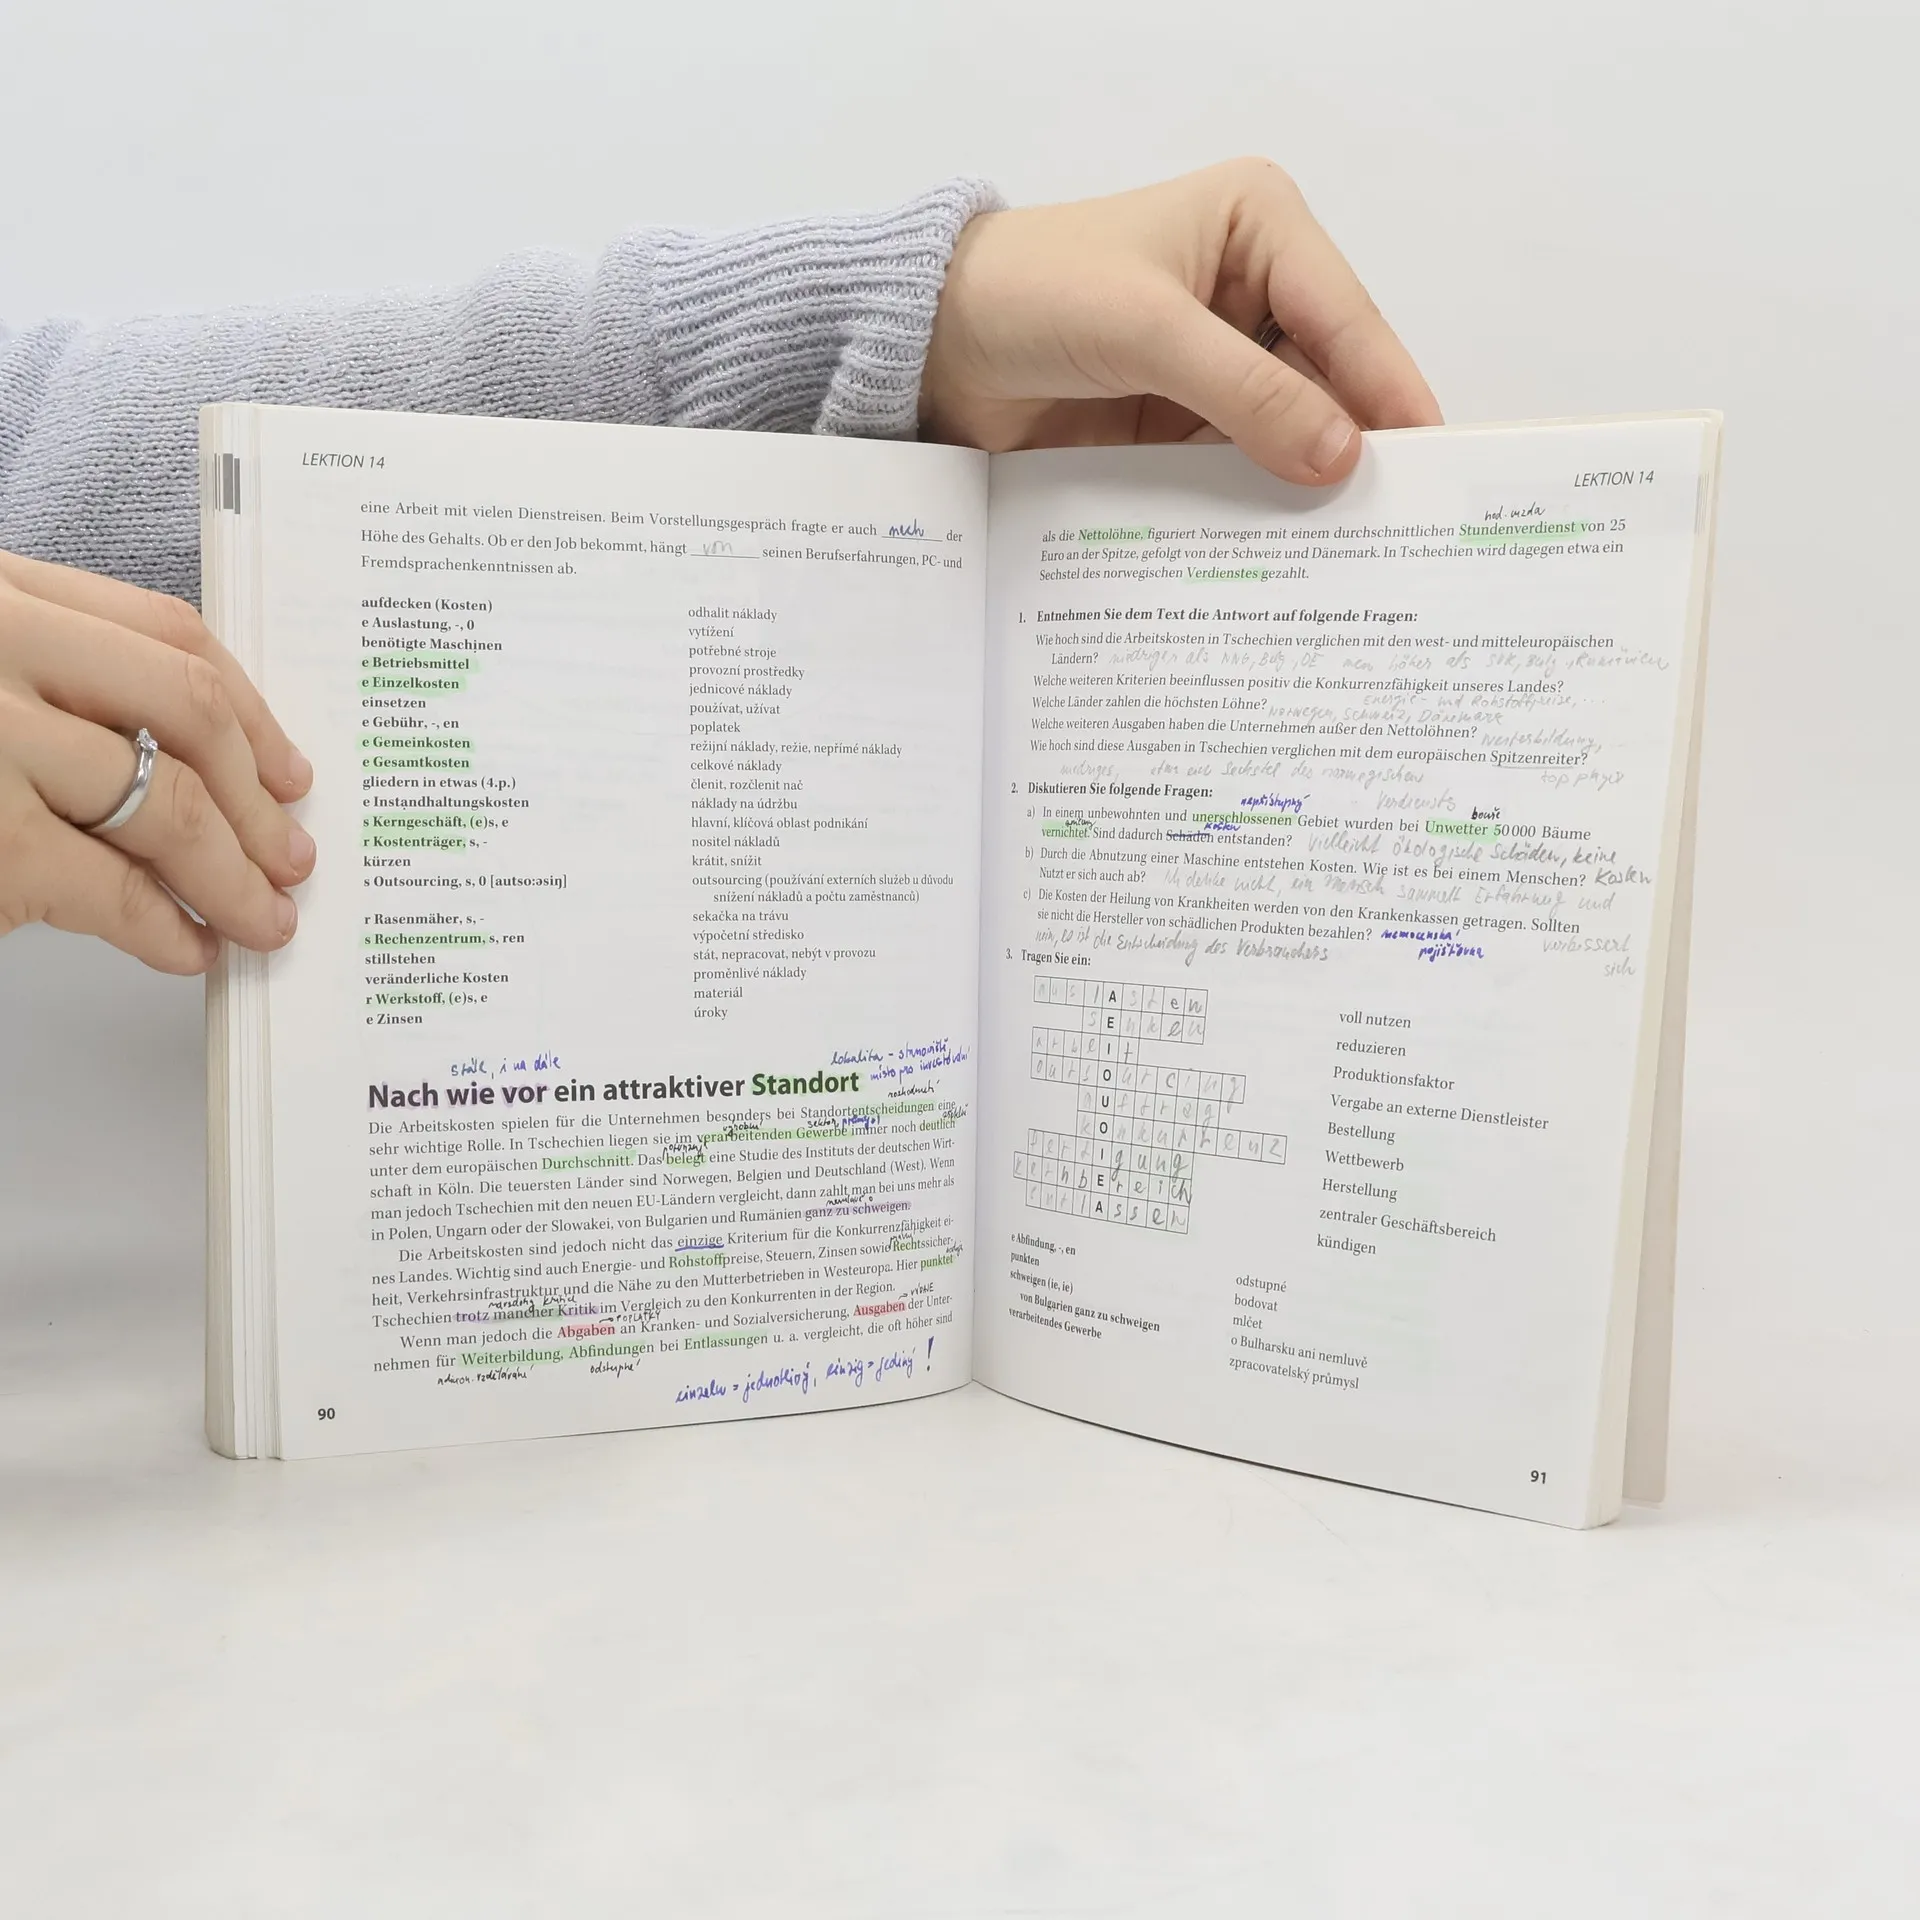 LEKTION 14
eine Arbeit mit vielen Dienstreisen. Beim Vorstellungsgespräch fragte er auch nach der
Höhe des Gehalts. Ob er den Job bekommt, hängt von seinen Berufserfahrungen, PC- und
Fremdsprachenkenntnissen ab.
aufdecken (Kosten) odhalit náklady
e Auslastung, -, 0 vytížení
benötigte Maschinen potřebné stroje
e Betriebsmittel provozní prostředky
e Einzelkosten jednicové náklady
einsetzen používat, užívat
e Gebühr, -, en poplatek
e Gemeinkosten režijní náklady, režie, nepřímé náklady
e Gesamtkosten celkové náklady
gliedern in etwas (4.p.) členit, rozčlenit nač
e Instandhaltungskosten náklady na údržbu
s Kerngeschäft, (e)s, e hlavní, klíčová oblast podnikání
r Kostenträger, s, - nositel nákladů
kürzen krátit, snížit
s Outsourcing, s, 0 [autso:əsiŋ] outsourcing (používání externích služeb u důvodu
snížení nákladů a počtu zaměstnanců)
r Rasenmäher, s, - sekačka na trávu
s Rechenzentrum, s, ren výpočetní středisko
stillstehen stát, nepracovat, nebýt v provozu
veränderliche Kosten proměnlivé náklady
r Werkstoff, (e)s, e materiál
e Zinsen úroky
stále, i na dále
lokalita - stanoviště,
místo pro investování
Nach wie vor ein attraktiver Standort
rozhodnutí
Die Arbeitskosten spielen für die Unternehmen besonders bei Standortentscheidungen eine
výrobní sektor, průmysl
sehr wichtige Rolle. In Tschechien liegen sie im verarbeitenden Gewerbe immer noch deutlich
unter dem europäischen Durchschnitt. Das belegt eine Studie des Instituts der deutschen Wirt-
schaft in Köln. Die teuersten Länder sind Norwegen, Belgien und Deutschland (West). Wenn
man jedoch Tschechien mit den neuen EU-Ländern vergleicht, dann zahlt man bei uns mehr als
nemluvě o
in Polen, Ungarn oder der Slowakei, von Bulgarien und Rumänien ganz zu schweigen.
Die Arbeitskosten sind jedoch nicht das einzige Kriterium für die Konkurrenzfähigkeit ei-
nes Landes. Wichtig sind auch Energie- und Rohstoffpreise, Steuern, Zinsen sowie Rechtssicher-
heit, Verkehrsinfrastruktur und die Nähe zu den Mutterbetrieben in Westeuropa. Hier punktet
navzdory kritice
Tschechien trotz mancher Kritik im Vergleich zu den Konkurrenten in der Region.
POPLATKY
Wenn man jedoch die Abgaben an Kranken- und Sozialversicherung, Ausgaben der Unter-
nehmen für Weiterbildung, Abfindungen bei Entlassungen u. a. vergleicht, die oft höher sind
odstupné
einzeln = jednotlivý, einzig = jediný !
90
LEKTION 14
hod. mzda
als die Nettolöhne, figuriert Norwegen mit einem durchschnittlichen Stundenverdienst von 25
Euro an der Spitze, gefolgt von der Schweiz und Dänemark. In Tschechien wird dagegen etwa ein
Sechstel des norwegischen Verdienstes gezahlt.
1. Entnehmen Sie dem Text die Antwort auf folgende Fragen:
Wie hoch sind die Arbeitskosten in Tschechien verglichen mit den west- und mitteleuropäischen
Ländern? niedriger als
Welche weiteren Kriterien beeinflussen positiv die Konkurrenzfähigkeit unseres Landes?
Energie- und Rohstoffpreise, ...
Welche Länder zahlen die höchsten Löhne? Norwegen, Schweiz, Dänemark
Welche weiteren Ausgaben haben die Unternehmen außer den Nettolöhnen? Weiterbildung, ...
Wie hoch sind diese Ausgaben in Tschechien verglichen mit dem europäischen Spitzenreiter?
Sechstel des norwegischen Verdiensts
2. Diskutieren Sie folgende Fragen:
nepřístupný bouře
a) In einem unbewohnten und unerschlossenen Gebiet wurden bei Unwetter 50 000 Bäume
Kosten
vernichtet. Sind dadurch Schäden entstanden? Vielleicht ökologische Schäden, keine Kosten
b) Durch die Abnutzung einer Maschine entstehen Kosten. Wie ist es bei einem Menschen?
Nutzt er sich auch ab? Ich denke nicht, ein Mensch sammelt Erfahrung und verbessert sich
c) Die Kosten der Heilung von Krankheiten werden von den Krankenkassen getragen. Sollten
sie nicht die Hersteller von schädlichen Produkten bezahlen? nemocenská pojišťovna
nein, es ist die Entscheidung des Verbrauchers
3. Tragen Sie ein:
auslAsten voll nutzen
sEnken reduzieren
arbeIt Produktionsfaktor
outsOurcing Vergabe an externe Dienstleister
aUftrag Bestellung
kOnkurrenz Wettbewerb
fertIgung Herstellung
kernbEreich zentraler Geschäftsbereich
entlAssen kündigen
e Abfindung, -, en odstupné
punkten bodovat
schweigen (ie, ie) mlčet
von Bulgarien ganz zu schweigen o Bulharsku ani nemluvě
verarbeitendes Gewerbe zpracovatelský průmysl
91